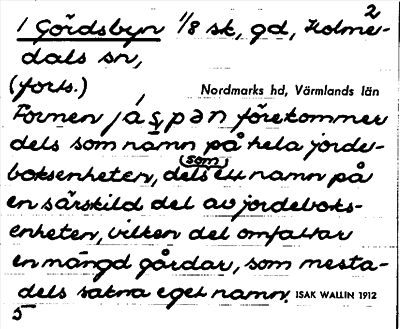 2
1 Gördsbyn 1/8 sk, gd, Holme-
dals sn,
(forts.)
Nordmarks hd, Värmlands län
Formen förekommer
dels som namn på hela jorde-
boksenheten, dels som namn på
en särskild del av jordeboks-
enheten, vilken del omfattar
en mängd gårdar, som mesta-
dels sakna eget namn. ISAK WALLIN 1912
5